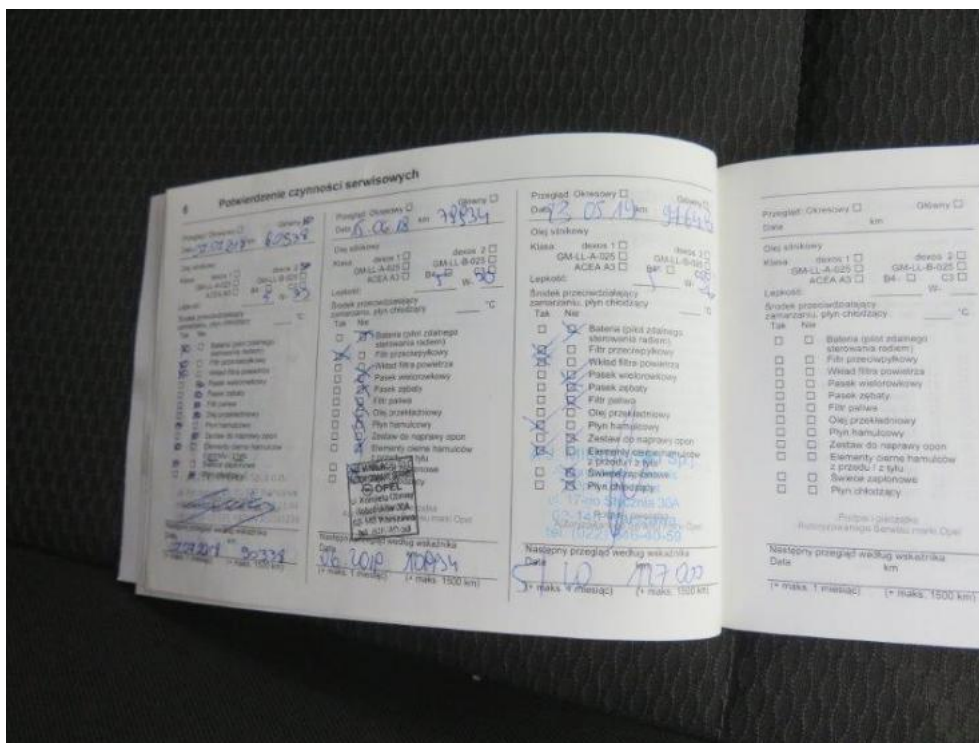 6 Potwierdzenie czynności serwisowych
Przegląd: Okresowy Główny
Data km 60338
Olej silnikowy
Klasa dexos 1 dexos 2
GM-LL-A-025 GM-LL-B-025
ACEA A3 B4 C3
Lepkość: 5 W- 30
Środek przeciwdziałający
zamarzaniu, płyn chłodzący °C
Tak Nie
Bateria (pilot zdalnego
sterowania radiem)
Filtr przeciwpyłkowy
Wkład filtra powietrza
Pasek wielorowkowy
Pasek zębaty
Filtr paliwa
Olej przekładniowy
Płyn hamulcowy
Zestaw do naprawy opon
Elementy cierne hamulców
z przodu i z tyłu
Świece zapłonowe
Następny przegląd według wskaźnika
Data km
2018 90338
(+ maks. 1500 km)
Przegląd: Okresowy Główny
Data 15.06.18 km 78934
Olej silnikowy
Klasa dexos 1 dexos 2
GM-LL-A-025 GM-LL-B-025
ACEA A3 B4 C3
Lepkość: 5 W- 30
Środek przeciwdziałający
zamarzaniu, płyn chłodzący °C
Tak Nie
Bateria (pilot zdalnego
sterowania radiem)
Filtr przeciwpyłkowy
Wkład filtra powietrza
Pasek wielorowkowy
Pasek zębaty
Filtr paliwa
Olej przekładniowy
Płyn hamulcowy
Zestaw do naprawy opon
Elementy cierne hamulców
z przodu i z tyłu
OPEL
Warszawa
Następny przegląd według wskaźnika
Data
06.2019 108934
(+ maks. 1 miesiąc) (+ maks. 1500 km)
Przegląd: Okresowy Główny
Data 05 19 km
Olej silnikowy
Klasa: dexos 1 dexos 2
GM-LL-A-025 GM-LL-B-025
ACEA A3 B4 C3
Lepkość: 5 W-
Środek przeciwdziałający
zamarzaniu, płyn chłodzący °C
Tak Nie
Bateria (pilot zdalnego
sterowania radiem)
Filtr przeciwpyłkowy
Wkład filtra powietrza
Pasek wielorowkowy
Pasek zębaty
Filtr paliwa
Olej przekładniowy
Płyn hamulcowy
Zestaw do naprawy opon
Elementy cierne hamulców
z przodu i z tyłu
Świece zapłonowe
Płyn chłodzący
ul. 17-go Stycznia
Następny przegląd według wskaźnika
Data km
127 000
(+ maks. 1 miesiąc) (+ maks. 1500 km)
Przegląd: Okresowy Główny
Data km
Olej silnikowy
Klasa dexos 1 dexos 2
GM-LL-A-025 GM-LL-B-025
ACEA A3 B4 C3
Lepkość: W-
Środek przeciwdziałający
zamarzaniu, płyn chłodzący °C
Tak Nie
Bateria (pilot zdalnego
sterowania radiem)
Filtr przeciwpyłkowy
Wkład filtra powietrza
Pasek wielorowkowy
Pasek zębaty
Filtr paliwa
Olej przekładniowy
Płyn hamulcowy
Zestaw do naprawy opon
Elementy cierne hamulców
z przodu i z tyłu
Świece zapłonowe
Płyn chłodzący
Podpis i pieczątka
Autoryzowanego Serwisu marki Opel
Następny przegląd według wskaźnika
Data km
(+ maks. 1 miesiąc) (+ maks. 1500 km)